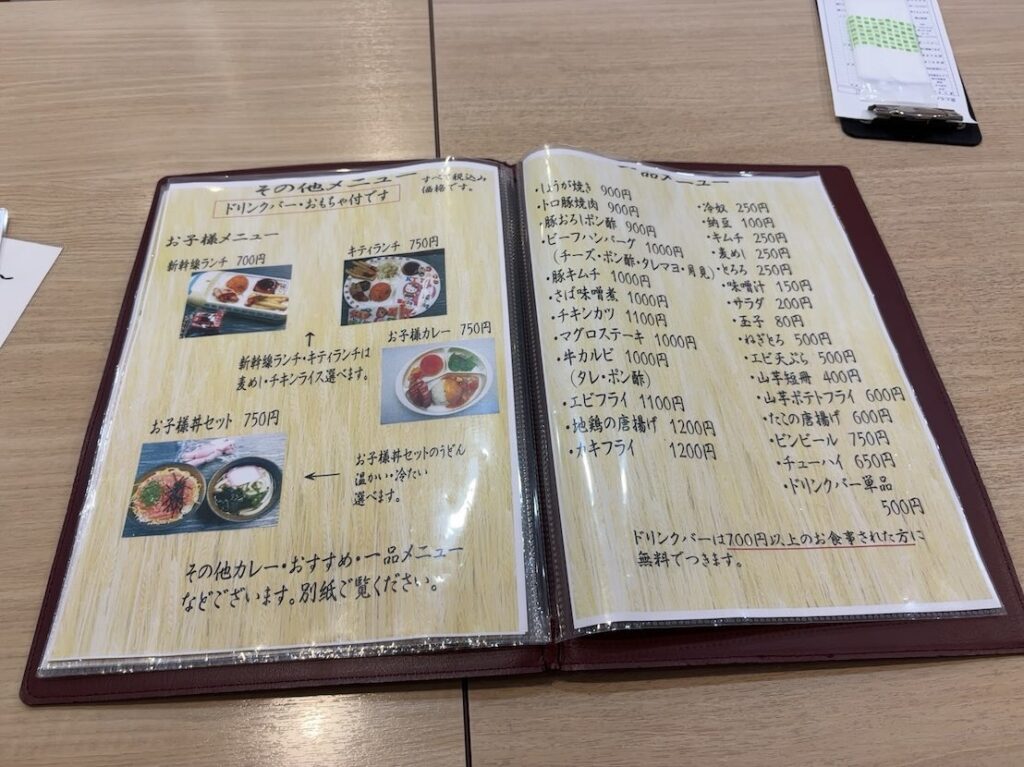 その他メニュー
すべて税込み
価格です。
ドリンクバー・おもちゃ付です
お子様メニュー
新幹線ランチ 700円
キティランチ 750円
お子様カレー 750円
新幹線ランチ・キティランチは
麦めし・チキンライス選べます。
お子様丼セット 750円
お子様丼セットのうどん
温かい・冷たい
選べます。
その他カレー・おすすめ・一品メニュー
などございます。別紙ご覧ください。
一品メニュー
・しょうが焼き 900円
・トロ豚焼肉 900円
・豚おろしポン酢 900円
・ビーフハンバーグ 1000円
(チーズ・ポン酢・タレマヨ・月見)
・豚キムチ 1000円
・さば味噌煮 1000円
・チキンカツ 1100円
・マグロステーキ 1000円
・牛カルビ 1000円
(タレ・ポン酢)
・エビフライ 1100円
・地鶏の唐揚げ 1200円
・カキフライ 1200円
・冷奴 250円
・納豆 100円
・キムチ 250円
・麦めし 250円
・とろろ 250円
・味噌汁 150円
・サラダ 200円
・玉子 80円
・ねぎとろ 500円
・エビ天ぷら 500円
・山芋短冊 400円
・山芋ポテトフライ 600円
・たこの唐揚げ 600円
・ビンビール 750円
・チューハイ 650円
・ドリンクバー単品
500円
ドリンクバーは700円以上のお食事された方に
無料でつきます。